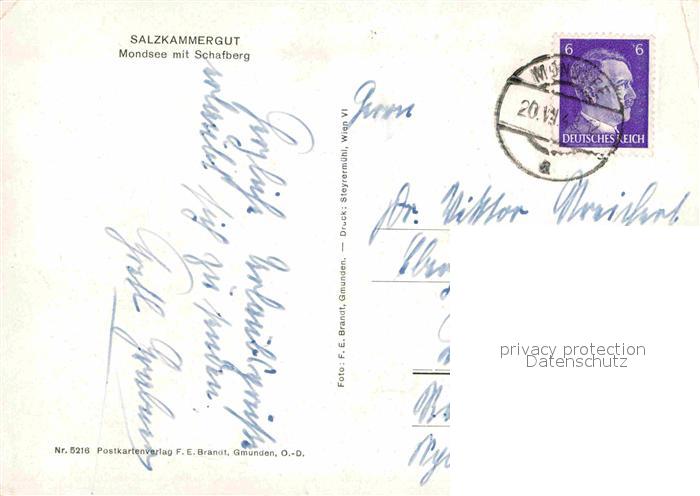 SALZKAMMERGUT
Mondsee mit Schafberg
Herzliche Urlaubsgrüße
erlaubt sich zu senden
Gretl
Nr. 5216 Postkartenverlag F. E. Brandt, Gmunden, O.-D.
Foto: F. E. Brandt, Gmunden. — Druck: Steyrermühl, Wien VI
6 6
DEUTSCHES REICH
MONDSEE
20.VI.
a
Herrn
Dr. Viktor
privacy protection
Datenschutz